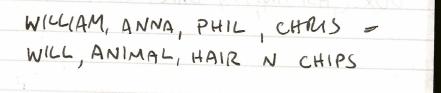 WILLIAM, ANNA, PHIL, CHRIS -
WILL, ANIMAL, HAIR N CHIPS